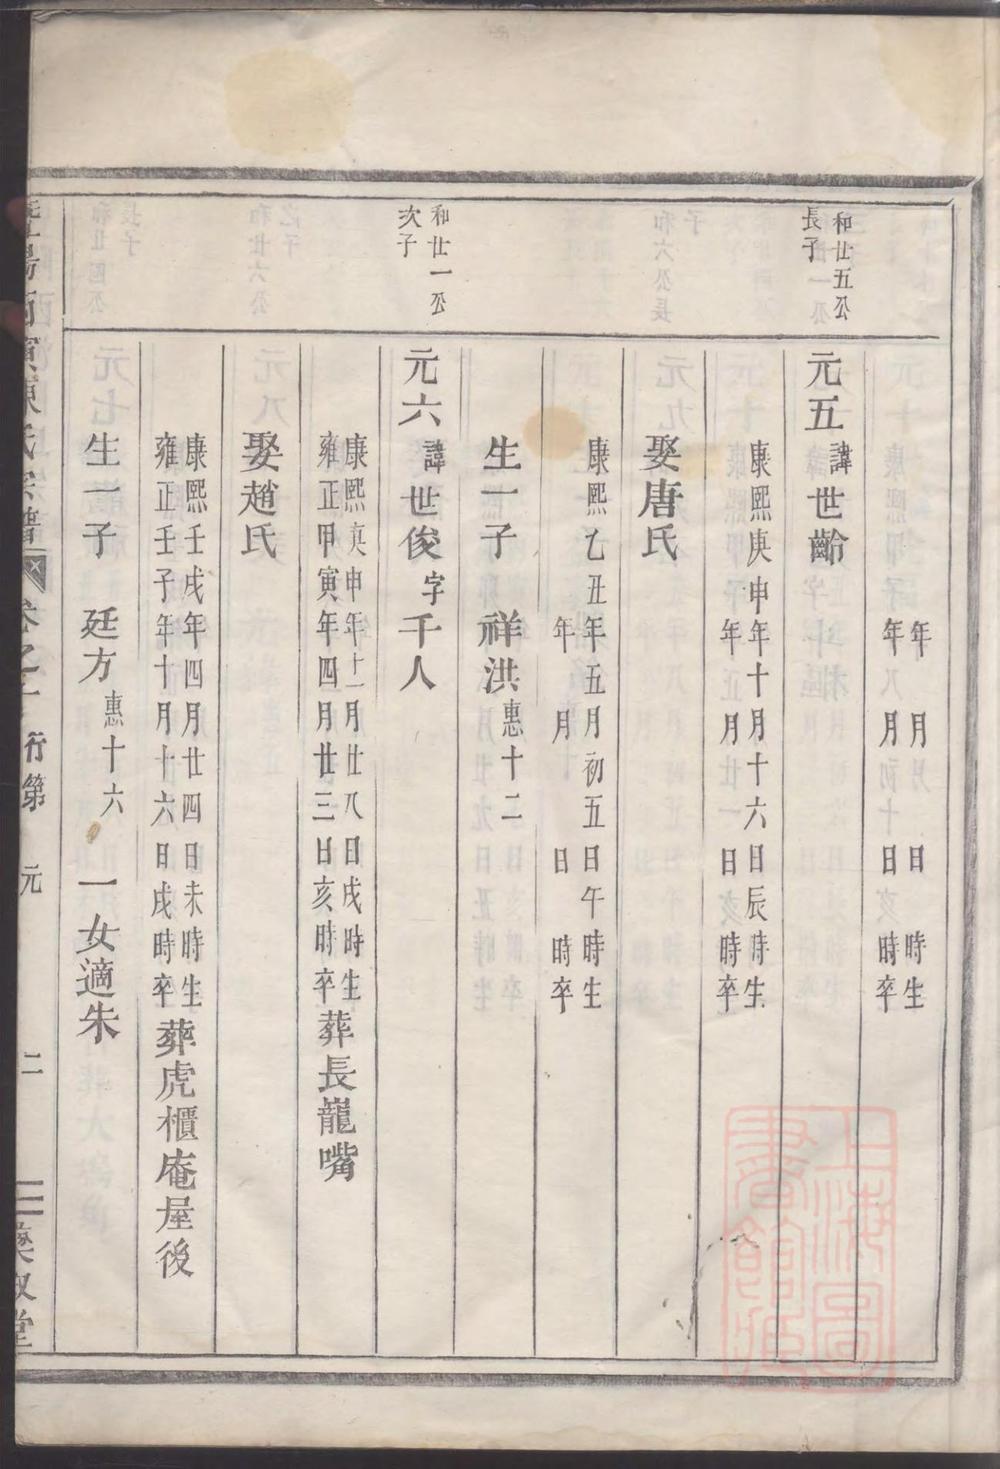 年 月 日 時生
年 月 日 時卒
和廿五公
長子
元五諱世齡
康熙庚申年十月十六日辰時生
年 月 日 時卒
娶唐氏
康熙乙丑年五月初五日午時生
年 月 日 時卒
生一子 祥洪惠十二
和廿一公
次子
元六諱世俊字千人
康熙庚申年十一月廿八日戌時生
雍正甲寅年四月廿三日亥時卒葬長巃嘴
娶趙氏
康熙壬戌年四月廿四日未時生
雍正壬子年十月十六日戌時卒葬虎櫃庵屋後
生一子 廷方惠十六 一女適朱
氏宗譜 卷之 行第 元 二 堂
上海圖書館藏